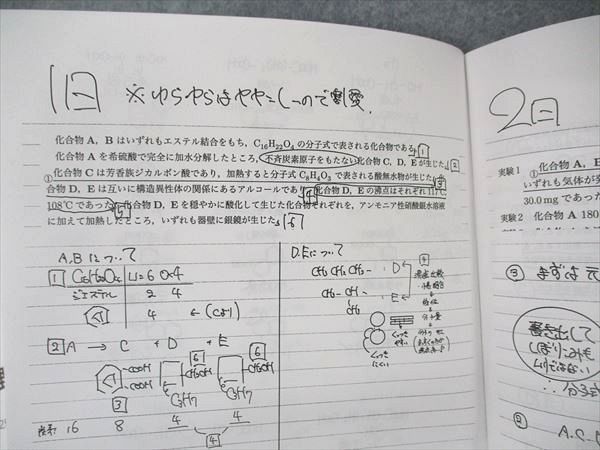 1日 ※ゆらやらはややこしーので割愛.
化合物A，Bはいずれもエステル結合をもち，C16H22O4の分子式で表される化合物である。1
化合物Aを希硫酸で完全に加水分解したところ，不斉炭素原子をもたない化合物C，D，Eが生じた。2
①化合物Cは芳香族ジカルボン酸であり，加熱すると分子式C8H4O3で表される酸無水物が生じた。3
合物D，Eは互いに構造異性体の関係にあるアルコールであり，4化合物D，Eの沸点はそれぞれ117℃
108℃であった。5化合物D，Eを穏やかに酸化して生じた化合物それぞれを，アンモニア性硝酸銀水溶液
に加えて加熱したところ，いずれも器壁に銀鏡が生じた。6
A,Bについて
1 C16H22O4 U=6 O×4
ジエステル 2 4
4 ← (Cより)
2 A → C + D + E
COOH
COOH
3
6
CH2OH
C3H7
6
CH2OH
C3H7
炭素 16 8 4 4
4
D,Eについて
CH3 CH2 CH2 - D
CH3 - CH - E
CH3
くっつきにくい
2日
実験1 ①化合物A，
いずれも気体が
30.0mgであった
実験2 化合物A 180
③ まずは元
書き出して
しぼりこみも
ムリではない
∴分子式
② A.C.